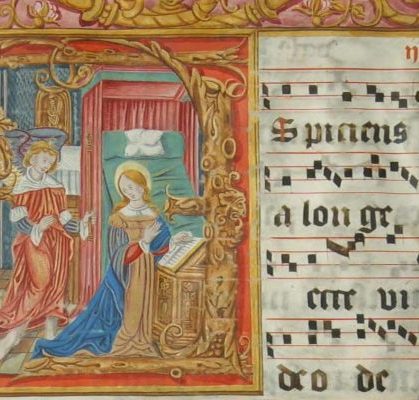 Spiciens
a lon ge
ecce vi
deo de